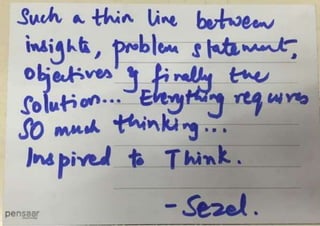 Such a thin line between
insights, problem statement,
objectives & finally the
solution... Everything requires
SO much thinking...
Inspired to Think.
- Sezel.
pensaar